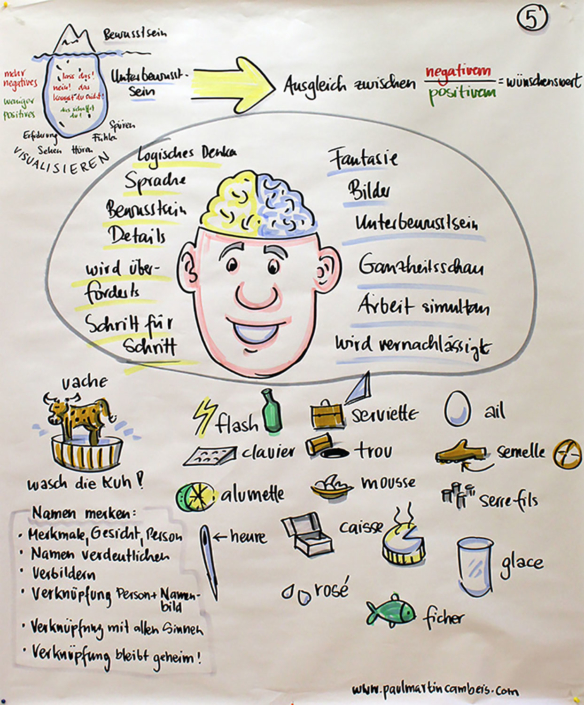 5
Bewusstsein
mehr
negatives
weniger
positives
lass das!
nein! das
kannst du nicht!
das schaffst
du!
Unterbewusst-
sein
Erfahrung
Sehen Hören
Fühlen
Spüren
VISUALISIEREN
Ausgleich zwischen negativem = wünschenswert
positivem
Logisches Denken
Sprache
Bewusstsein
Details
wird über-
fordert
Schritt für
Schritt
Fantasie
Bilder
Unterbewusstsein
Ganzheitsschau
Arbeit simultan
wird vernachlässigt
vache
wasch die Kuh!
flash
serviette
ail
clavier
trou
semelle
alumette
mousse
serre-fils
heure
caisse
glace
rosé
ficher
Namen merken:
• Merkmale, Gesicht, Person
• Namen verdeutlichen
• Verbildern
• Verknüpfung Person + Namen-
bild
• Verknüpfung mit allen Sinnen
• Verknüpfung bleibt geheim!
www.paulmartincambeis.com